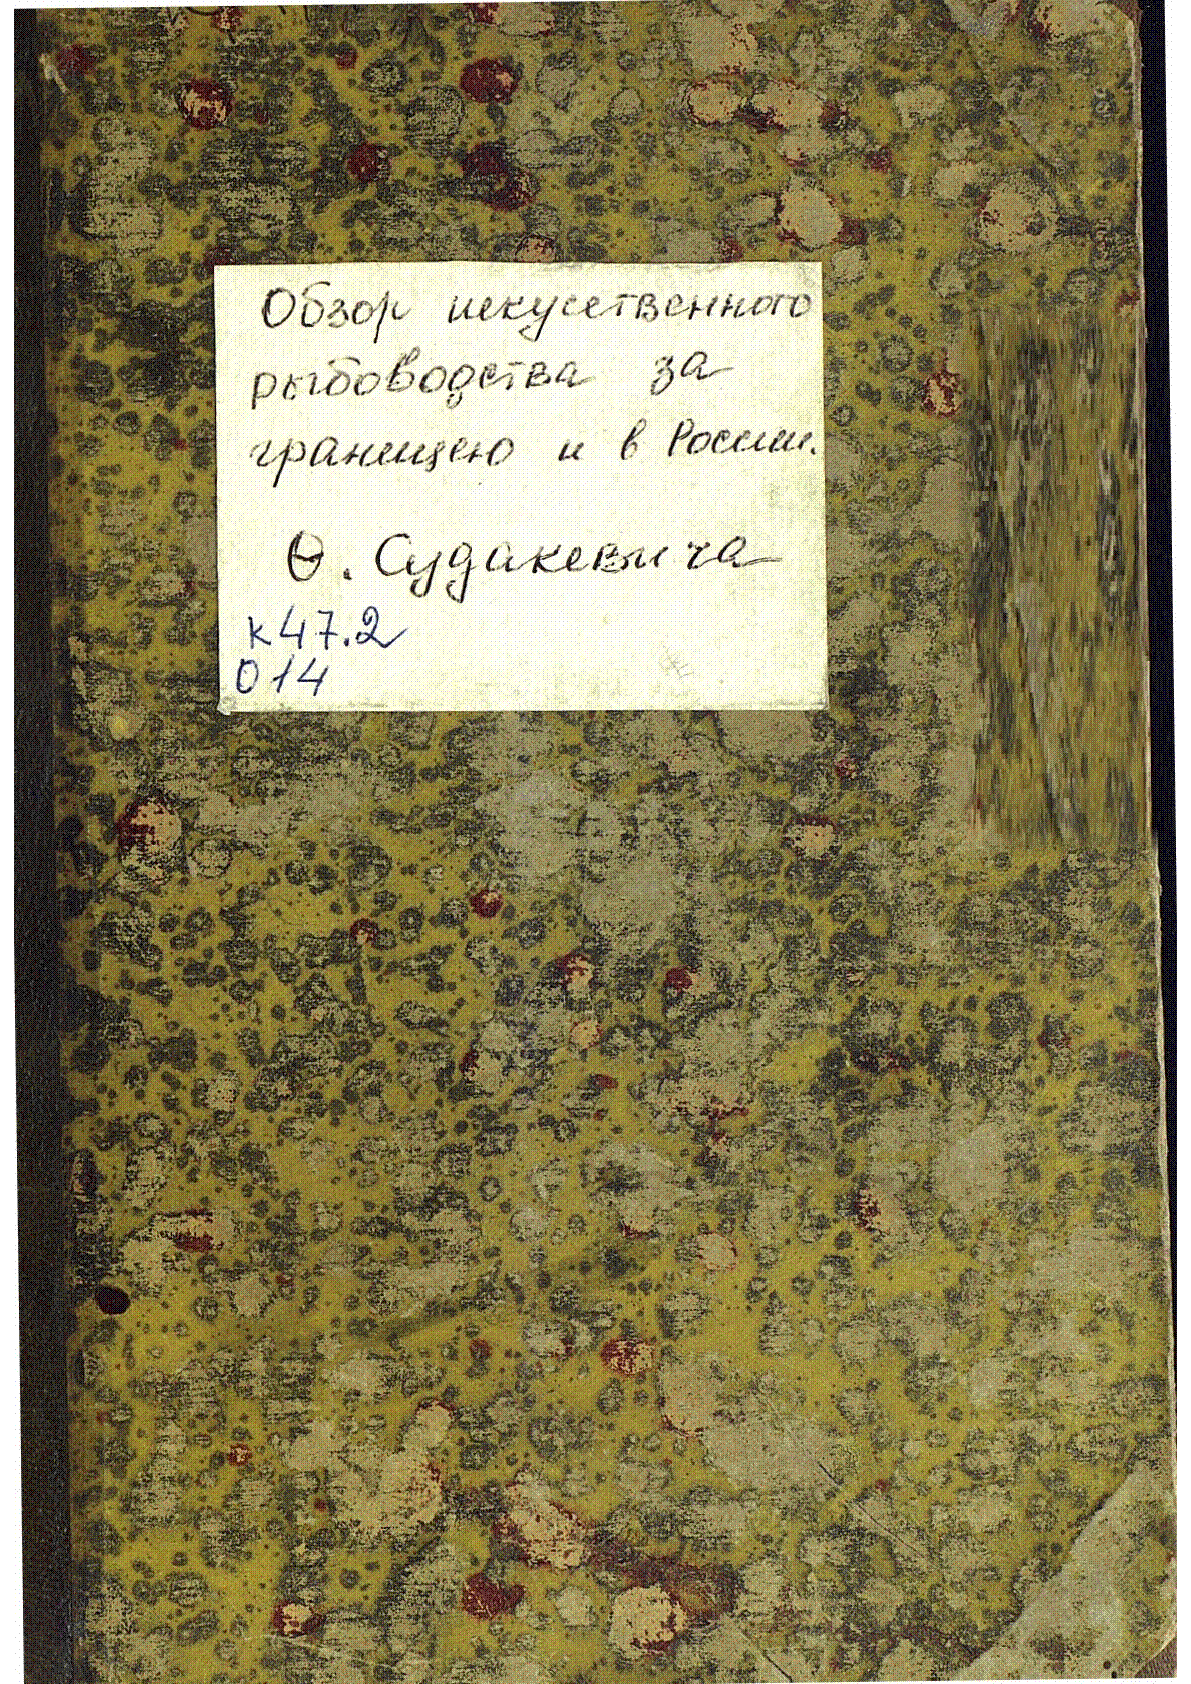 Обзор искусственного
рыбоводства за
границею и в России.
Ѳ. Судакевича
к 47.2
014